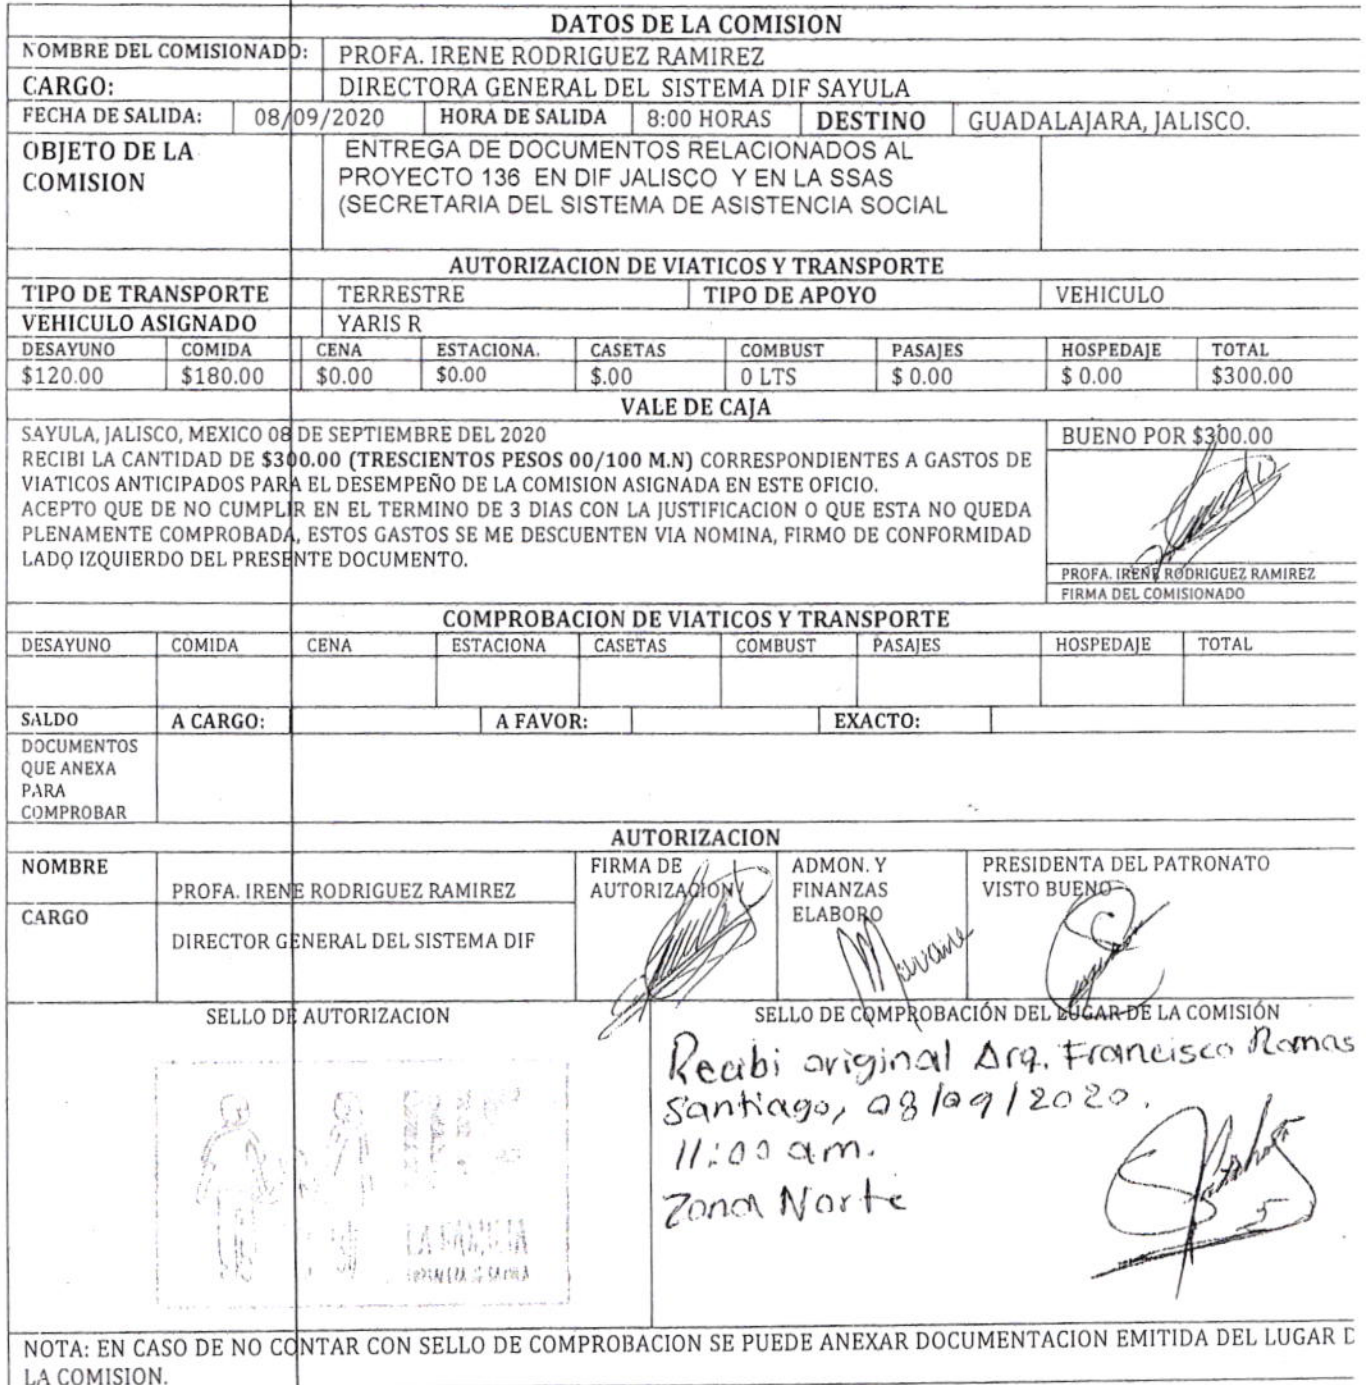 DATOS DE LA COMISION
NOMBRE DEL COMISIONADO: PROFA. IRENE RODRIGUEZ RAMIREZ
CARGO: DIRECTORA GENERAL DEL SISTEMA DIF SAYULA
FECHA DE SALIDA: 08/09/2020 HORA DE SALIDA 8:00 HORAS DESTINO GUADALAJARA, JALISCO.
OBJETO DE LA COMISION
ENTREGA DE DOCUMENTOS RELACIONADOS AL
PROYECTO 136 EN DIF JALISCO Y EN LA SSAS
(SECRETARIA DEL SISTEMA DE ASISTENCIA SOCIAL
AUTORIZACION DE VIATICOS Y TRANSPORTE
TIPO DE TRANSPORTE TERRESTRE TIPO DE APOYO VEHICULO
VEHICULO ASIGNADO YARIS R
DESAYUNO COMIDA CENA ESTACIONA. CASETAS COMBUST PASAJES HOSPEDAJE TOTAL
$120.00 $180.00 $0.00 $0.00 $.00 0 LTS $ 0.00 $ 0.00 $300.00
VALE DE CAJA
SAYULA, JALISCO, MEXICO 08 DE SEPTIEMBRE DEL 2020
RECIBI LA CANTIDAD DE $300.00 (TRESCIENTOS PESOS 00/100 M.N) CORRESPONDIENTES A GASTOS DE
VIATICOS ANTICIPADOS PARA EL DESEMPEÑO DE LA COMISION ASIGNADA EN ESTE OFICIO.
ACEPTO QUE DE NO CUMPLIR EN EL TERMINO DE 3 DIAS CON LA JUSTIFICACION O QUE ESTA NO QUEDA
PLENAMENTE COMPROBADA, ESTOS GASTOS SE ME DESCUENTEN VIA NOMINA, FIRMO DE CONFORMIDAD
LADO IZQUIERDO DEL PRESENTE DOCUMENTO.
BUENO POR $300.00
PROFA. IRENE RODRIGUEZ RAMIREZ
FIRMA DEL COMISIONADO
COMPROBACION DE VIATICOS Y TRANSPORTE
DESAYUNO COMIDA CENA ESTACIONA CASETAS COMBUST PASAJES HOSPEDAJE TOTAL
SALDO A CARGO: A FAVOR: EXACTO:
DOCUMENTOS
QUE ANEXA
PARA
COMPROBAR
AUTORIZACION
NOMBRE
PROFA. IRENE RODRIGUEZ RAMIREZ
CARGO
DIRECTOR GENERAL DEL SISTEMA DIF
FIRMA DE
AUTORIZACION
ADMON. Y
FINANZAS
ELABORO
PRESIDENTA DEL PATRONATO
VISTO BUENO
SELLO DE AUTORIZACION
LA FAMILIA
SELLO DE COMPROBACIÓN DEL LUGAR DE LA COMISIÓN
Recibi original Arq. Francisco Ramas
Santiago, 08/09/2020.
11:00 am.
Zona Norte
NOTA: EN CASO DE NO CONTAR CON SELLO DE COMPROBACION SE PUEDE ANEXAR DOCUMENTACION EMITIDA DEL LUGAR D
LA COMISION.